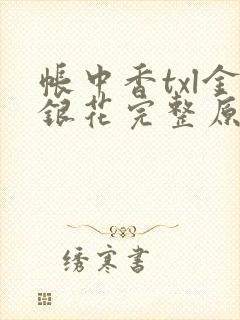 帐中香txl金
银花完整原
绣寒书